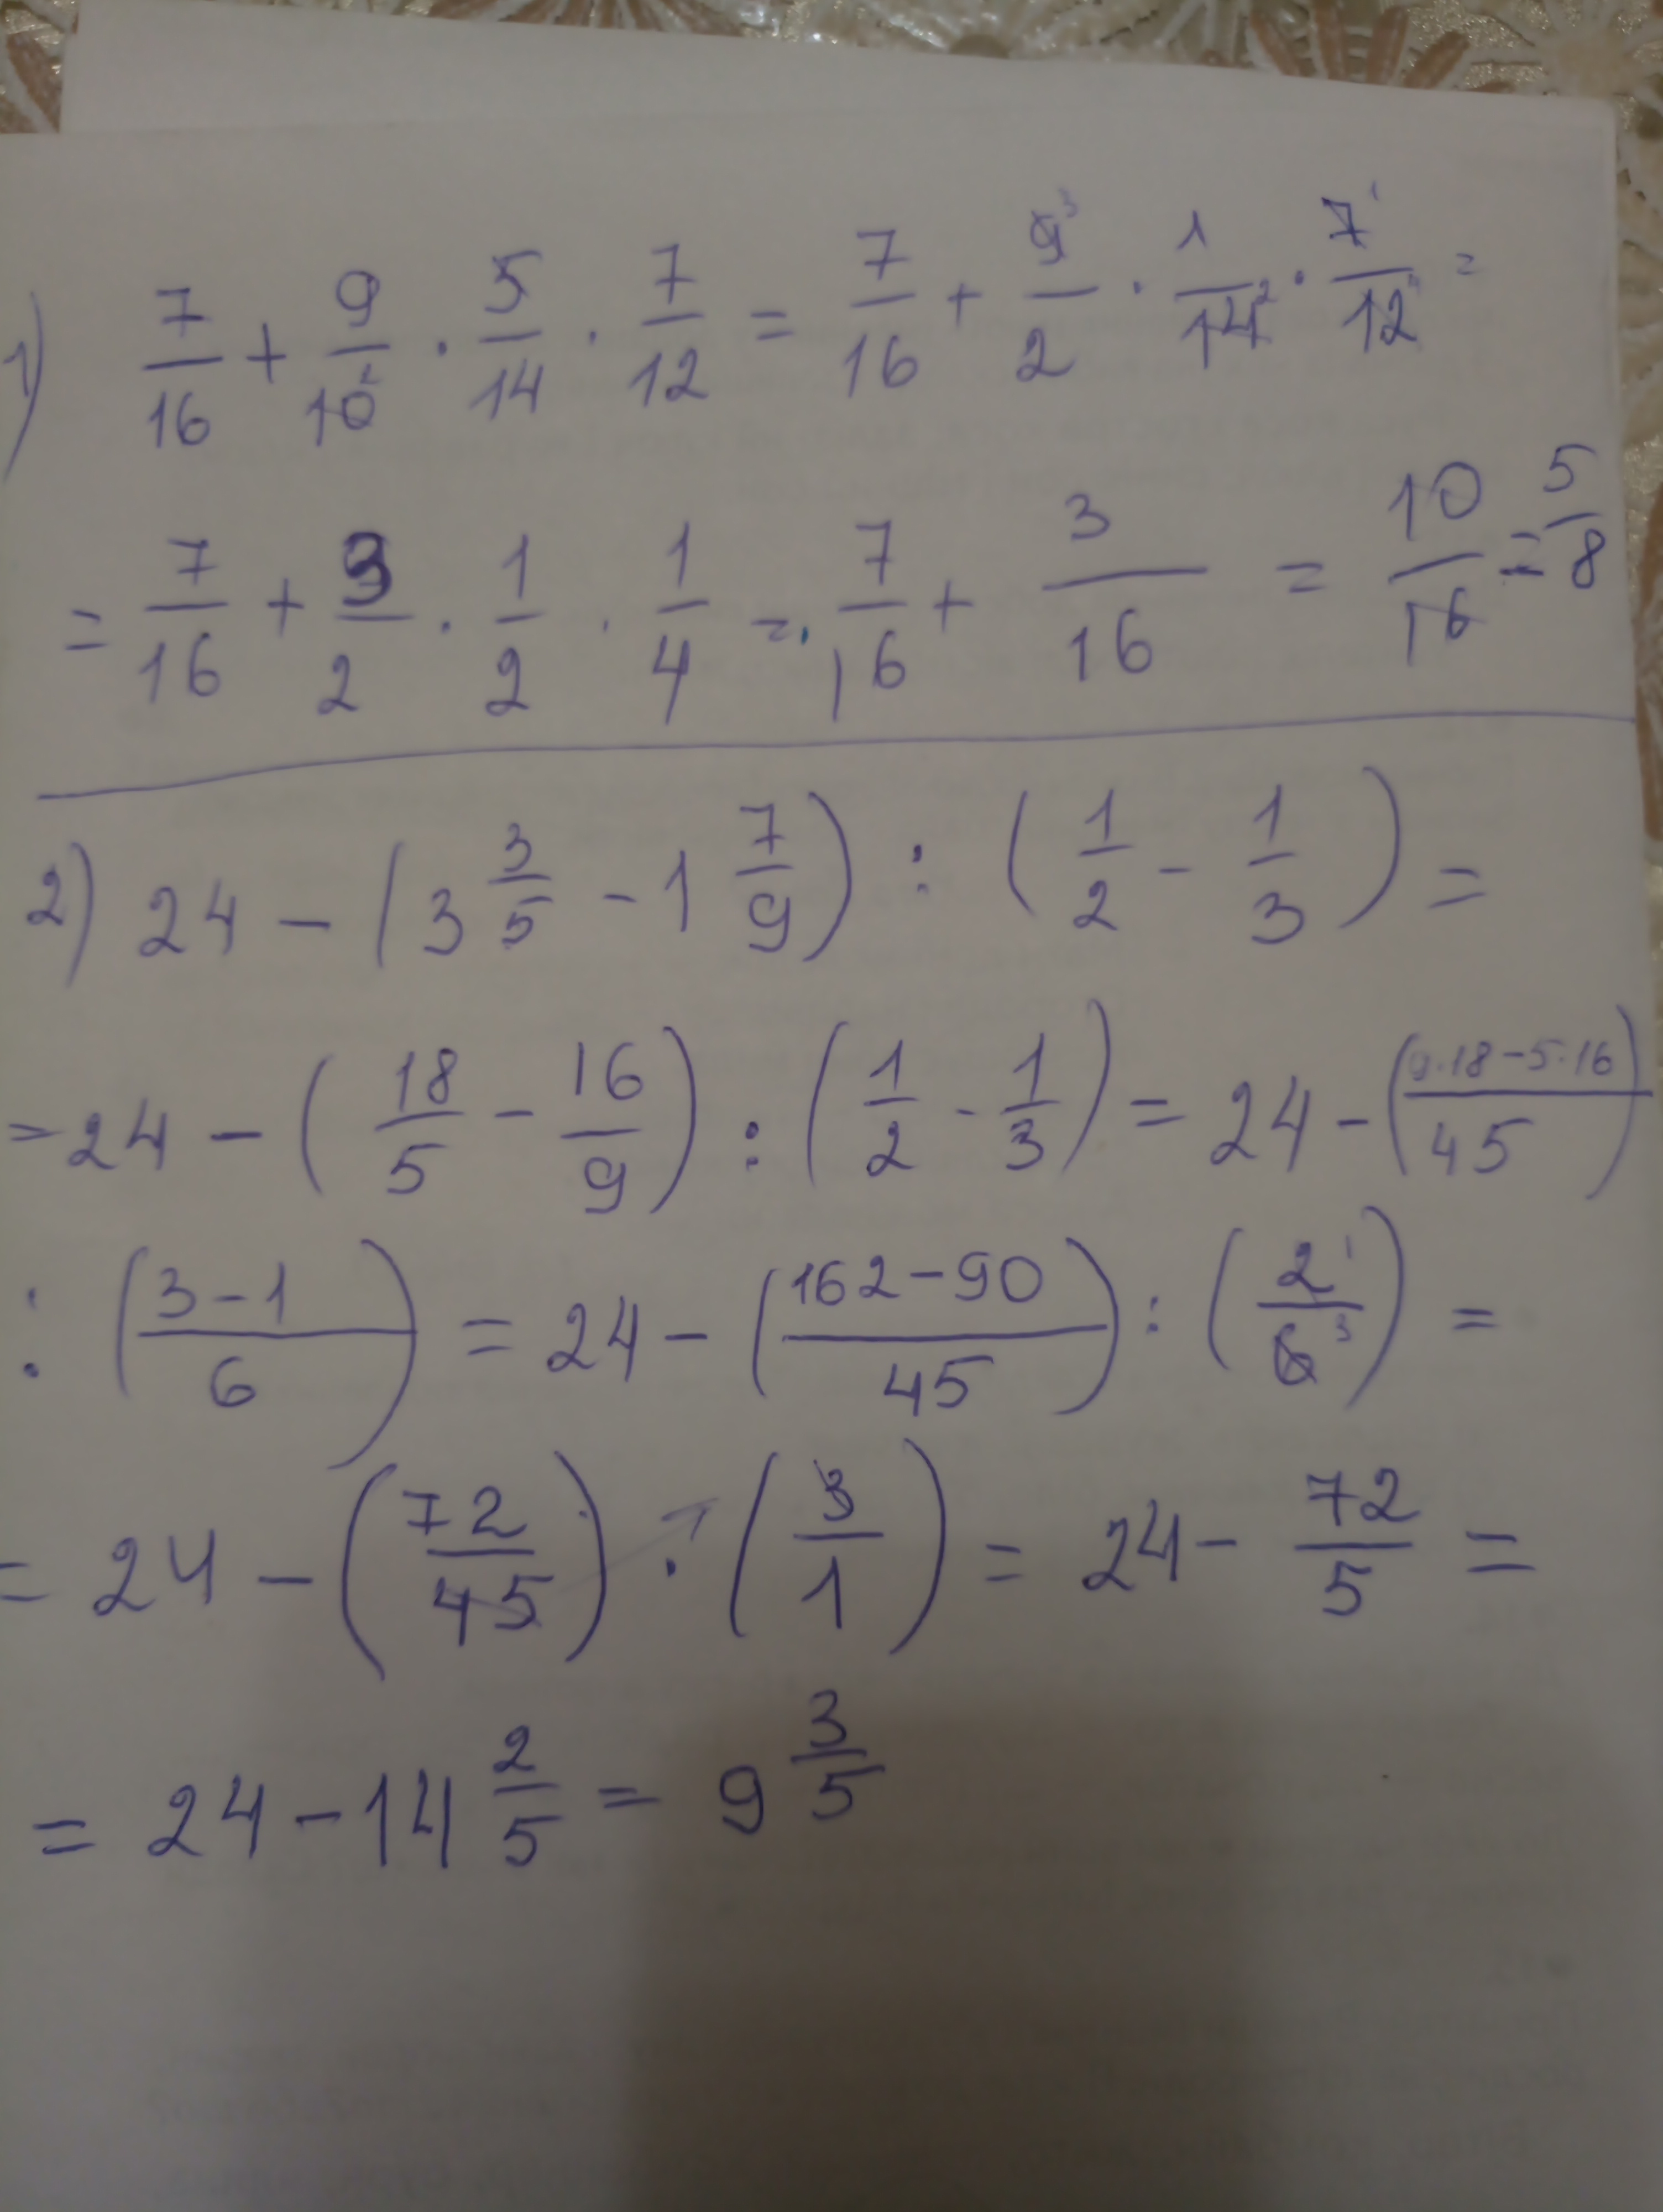 1) 7/16 + 9/10² · 5/14 · 7/12 = 7/16 + 9³/2 · 1/14² · 7¹/12⁴ =
= 7/16 + 3/2 · 1/2 · 1/4 = 7/16 + 3/16 = 10/16 = 5/8
2) 24 - (3 3/5 - 1 7/9) : (1/2 - 1/3) =
= 24 - (18/5 - 16/9) : (1/2 - 1/3) = 24 - (9·18-5·16/45)
: (3-1/6) = 24 - (162-90/45) : (2¹/6³) =
= 24 - (72/45) · (3/1) = 24 - 72/5 =
= 24 - 14 2/5 = 9 3/5